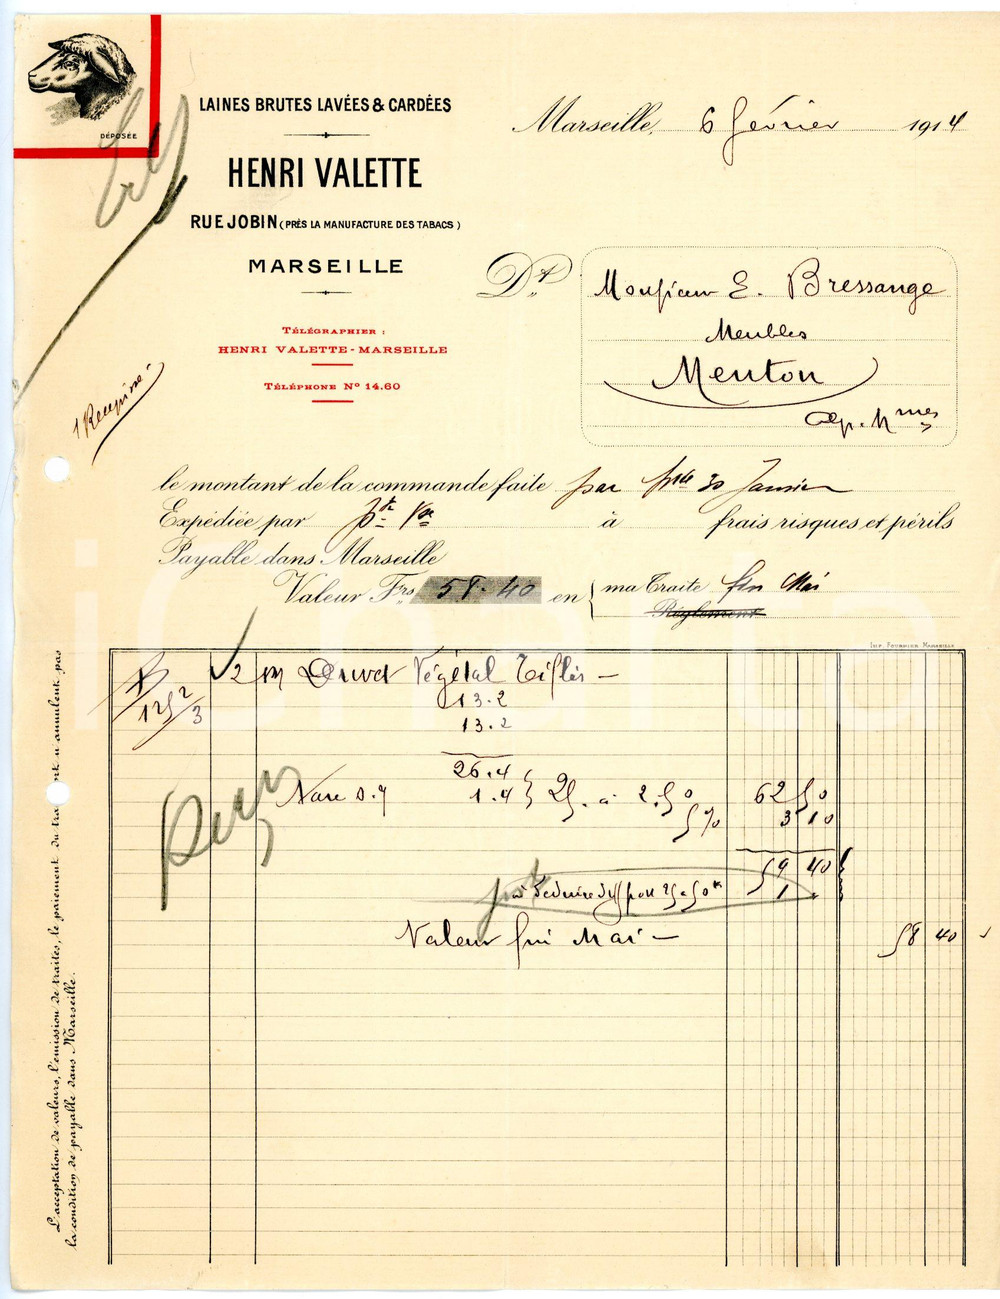 DÉPOSÉE
LAINES BRUTES LAVÉES & CARDÉES
HENRI VALETTE
RUE JOBIN (PRÈS LA MANUFACTURE DES TABACS)
MARSEILLE
TÉLÉGRAPHIER :
HENRI VALETTE-MARSEILLE
TÉLÉPHONE Nº 14.60
Marseille, 6 février 1914
Dt
Monsieur E. Bressange
Meubles
Menton
Alp. Mmes
1 Récépissé
le montant de la commande faite par 30 Janvier
Expédiée par à frais risques et périls
Payable dans Marseille
Valeur Frs 58.40 en ma Traite fin Mai
Règlement
IMP. FOURNIER MARSEILLE
2 Duvet Végétal
1252/3
13.2
13.2
26.4
Tare 1.4 25. à 2.50 62 50
5% 3 10
59 40
à déduire 1
Valeur fin Mai — 58 40
L'acceptation de valeurs, l'émission de traites, le paiement du n'annulent pas
la condition de payable dans Marseille.